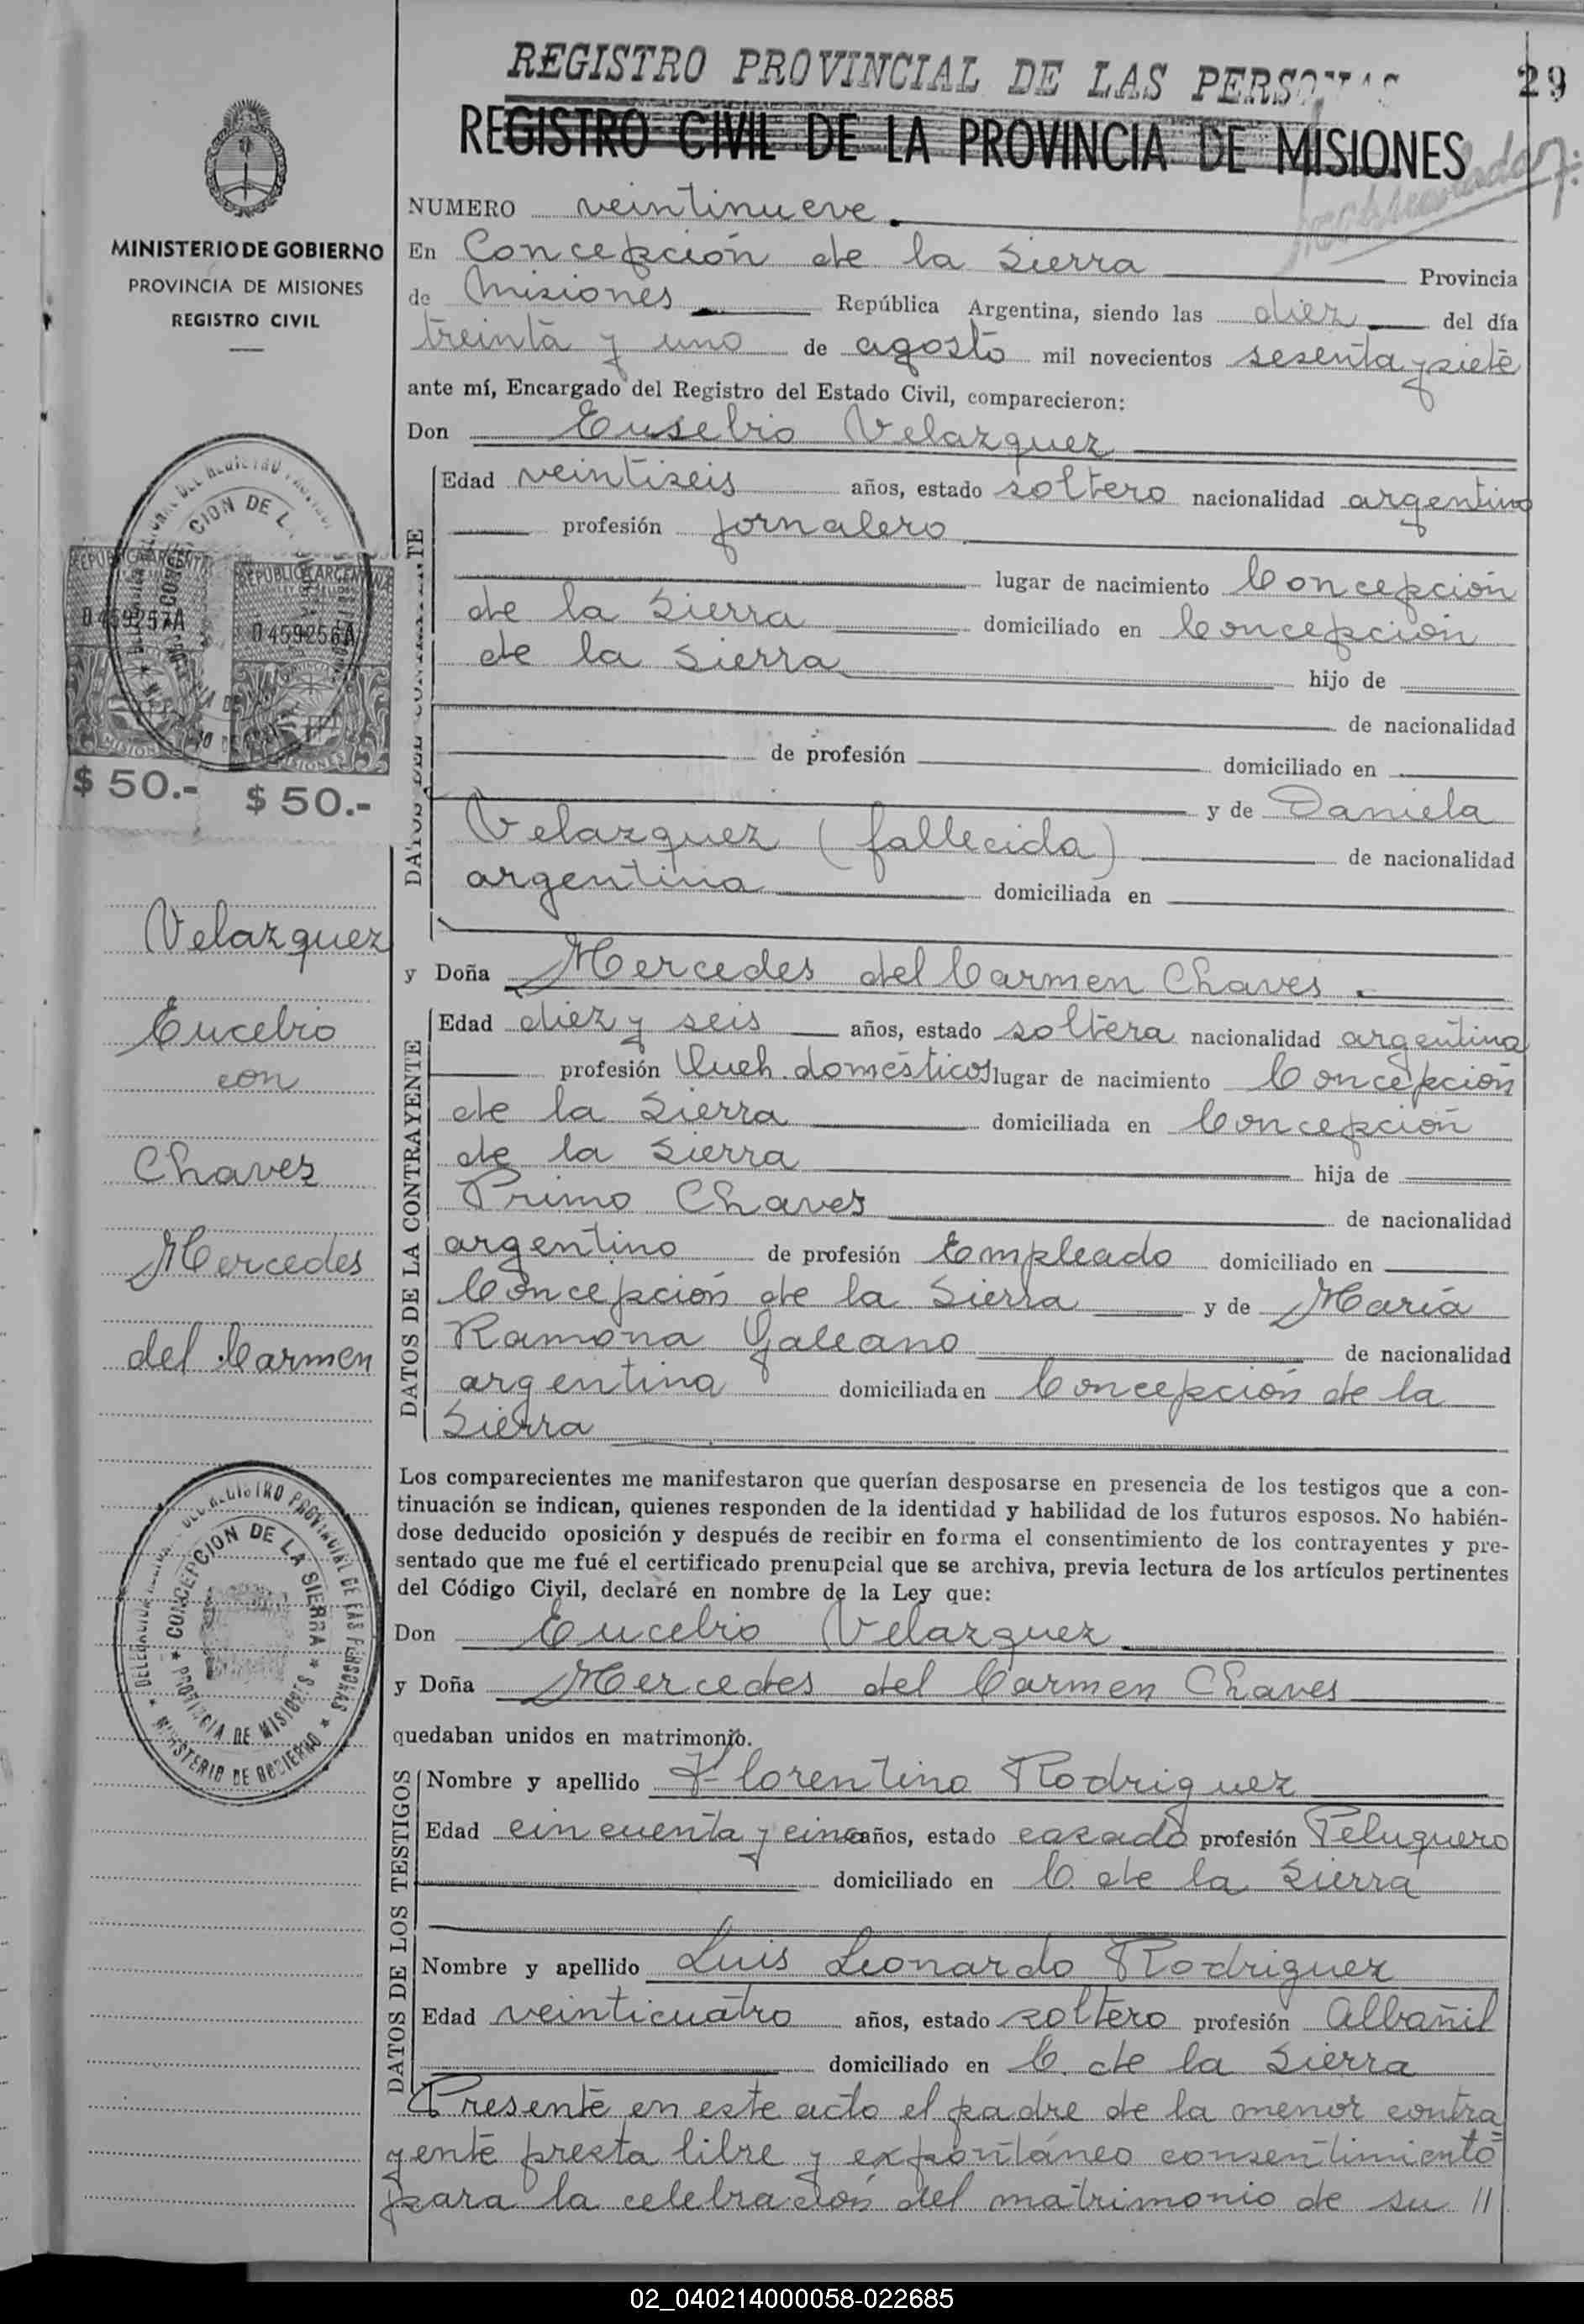 REGISTRO PROVINCIAL DE LAS PERSONAS
29
REGISTRO CIVIL DE LA PROVINCIA DE MISIONES
MINISTERIO DE GOBIERNO
PROVINCIA DE MISIONES
REGISTRO CIVIL
NUMERO veintinueve.
En Concepción de la Sierra Provincia
de Misiones República Argentina, siendo las diez del día
treinta y uno de agosto mil novecientos sesenta y siete
ante mí, Encargado del Registro del Estado Civil, comparecieron:
Don Eusebio Velazquez
DATOS DEL CONTRAYENTE
Edad veintiseis años, estado soltero nacionalidad argentino
profesión jornalero
lugar de nacimiento Concepción
de la Sierra domiciliado en Concepción
de la Sierra hijo de
de nacionalidad
de profesión domiciliado en
y de Daniela
Velazquez (fallecida) de nacionalidad
argentina domiciliada en
REPUBLICA ARGENTINA
0459257A
MISIONES
$ 50.-
REPUBLICA ARGENTINA
0459256A
MISIONES
$ 50.-
Velazquez
Eucebio
con
Chaves
Mercedes
del Carmen
y Doña Mercedes del Carmen Chaves.
DATOS DE LA CONTRAYENTE
Edad diez y seis años, estado soltera nacionalidad argentina
profesión Queh. domésticos lugar de nacimiento Concepción
de la Sierra domiciliada en Concepción
de la Sierra hija de
Primo Chaves de nacionalidad
argentino de profesión Empleado domiciliado en
Concepción de la Sierra y de María
Ramona Galeano de nacionalidad
argentina domiciliada en Concepción de la
Sierra
Los comparecientes me manifestaron que querían desposarse en presencia de los testigos que a con-
tinuación se indican, quienes responden de la identidad y habilidad de los futuros esposos. No habién-
dose deducido oposición y después de recibir en forma el consentimiento de los contrayentes y pre-
sentado que me fué el certificado prenupcial que se archiva, previa lectura de los artículos pertinentes
del Código Civil, declaré en nombre de la Ley que:
Don Eucebio Velazquez
y Doña Mercedes del Carmen Chaves
quedaban unidos en matrimonio.
DELEGACION DEL REGISTRO PROVINCIAL DE LAS PERSONAS
CONCEPCION DE LA SIERRA
PROVINCIA DE MISIONES
MINISTERIO DE GOBIERNO
DATOS DE LOS TESTIGOS
Nombre y apellido Florentino Rodriguez
Edad cincuenta y cinco años, estado casado profesión Peluquero
domiciliado en C. de la Sierra
Nombre y apellido Luis Leonardo Rodriguez
Edad veinticuatro años, estado soltero profesión Albañil
domiciliado en C. de la Sierra
Presente en este acto el padre de la menor contra=
yente presta libre y expontáneo consentimiento
para la celebración del matrimonio de su //
02_040214000058-022685